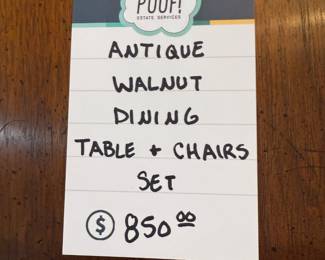 POOF!
ESTATE SERVICES
ANTIQUE
WALNUT
DINING
TABLE + CHAIRS
SET
$ 850 00